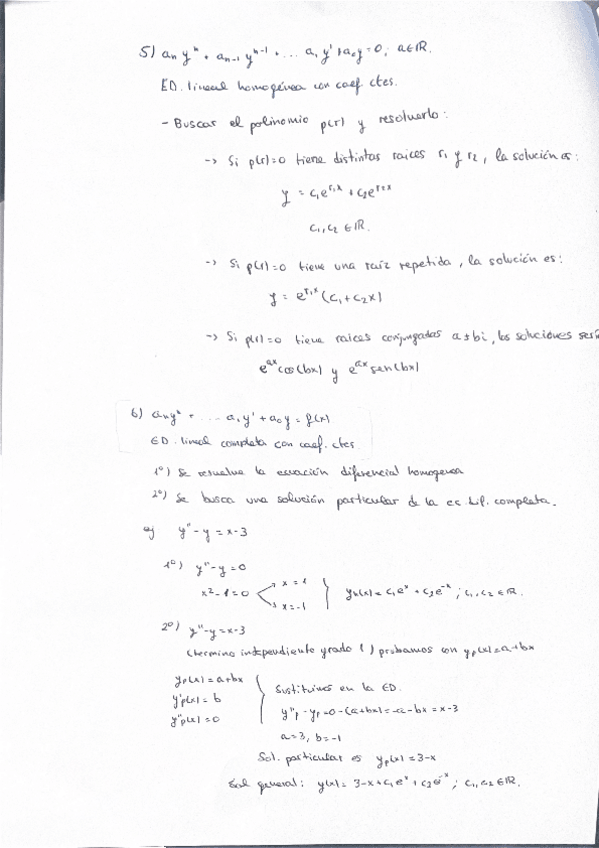 5) aₙ yⁿ + aₙ₋₁ yⁿ⁻¹ + ... a₁ y' + a₀y = 0; a∈ℝ.
ED. lineal homogénea con coef ctes.
- Buscar el polinomio p(r) y resolverlo:
-> Si p(r)=0 tiene distintas raices r₁ y r₂, la solución es:
y = c₁e^{r₁x} + c₂e^{r₂x}
c₁, c₂ ∈ ℝ.
-> Si p(r)=0 tiene una raíz repetida, la solución es:
y = e^{r₁x} (c₁ + c₂x)
-> Si p(r)=0 tiene raices conjungadas a ± bi, las soluciones serí
e^{ax} cos(bx) y e^{ax} sen(bx)
6) aₙyⁿ + ... a₁ y' + a₀ y = f(x)
ED. lineal completa con coef. ctes.
1º) Se resuelve la ecuación diferencial homogenea
2º) Se busca una solución particular de la ec. dif. completa.
ej y'' - y = x - 3
1º) y'' - y = 0
x² - 1 = 0 x = 1 x = -1 } yₕ(x) = c₁eˣ + c₂e⁻ˣ; c₁, c₂ ∈ ℝ.
2º) y'' - y = x - 3
(termino independiente grado 1) probamos con yₚ(x) = a + bx
yₚ(x) = a + bx
y'ₚ(x) = b
y''ₚ(x) = 0
Sustituimos en la ED.
y''ₚ - yₚ = 0 - (a + bx) = -a - bx = x - 3
a = 3, b = -1
Sol. particular es yₚ(x) = 3 - x
Sol general: y(x) = 3 - x + c₁eˣ + c₂e⁻ˣ; c₁, c₂ ∈ ℝ.